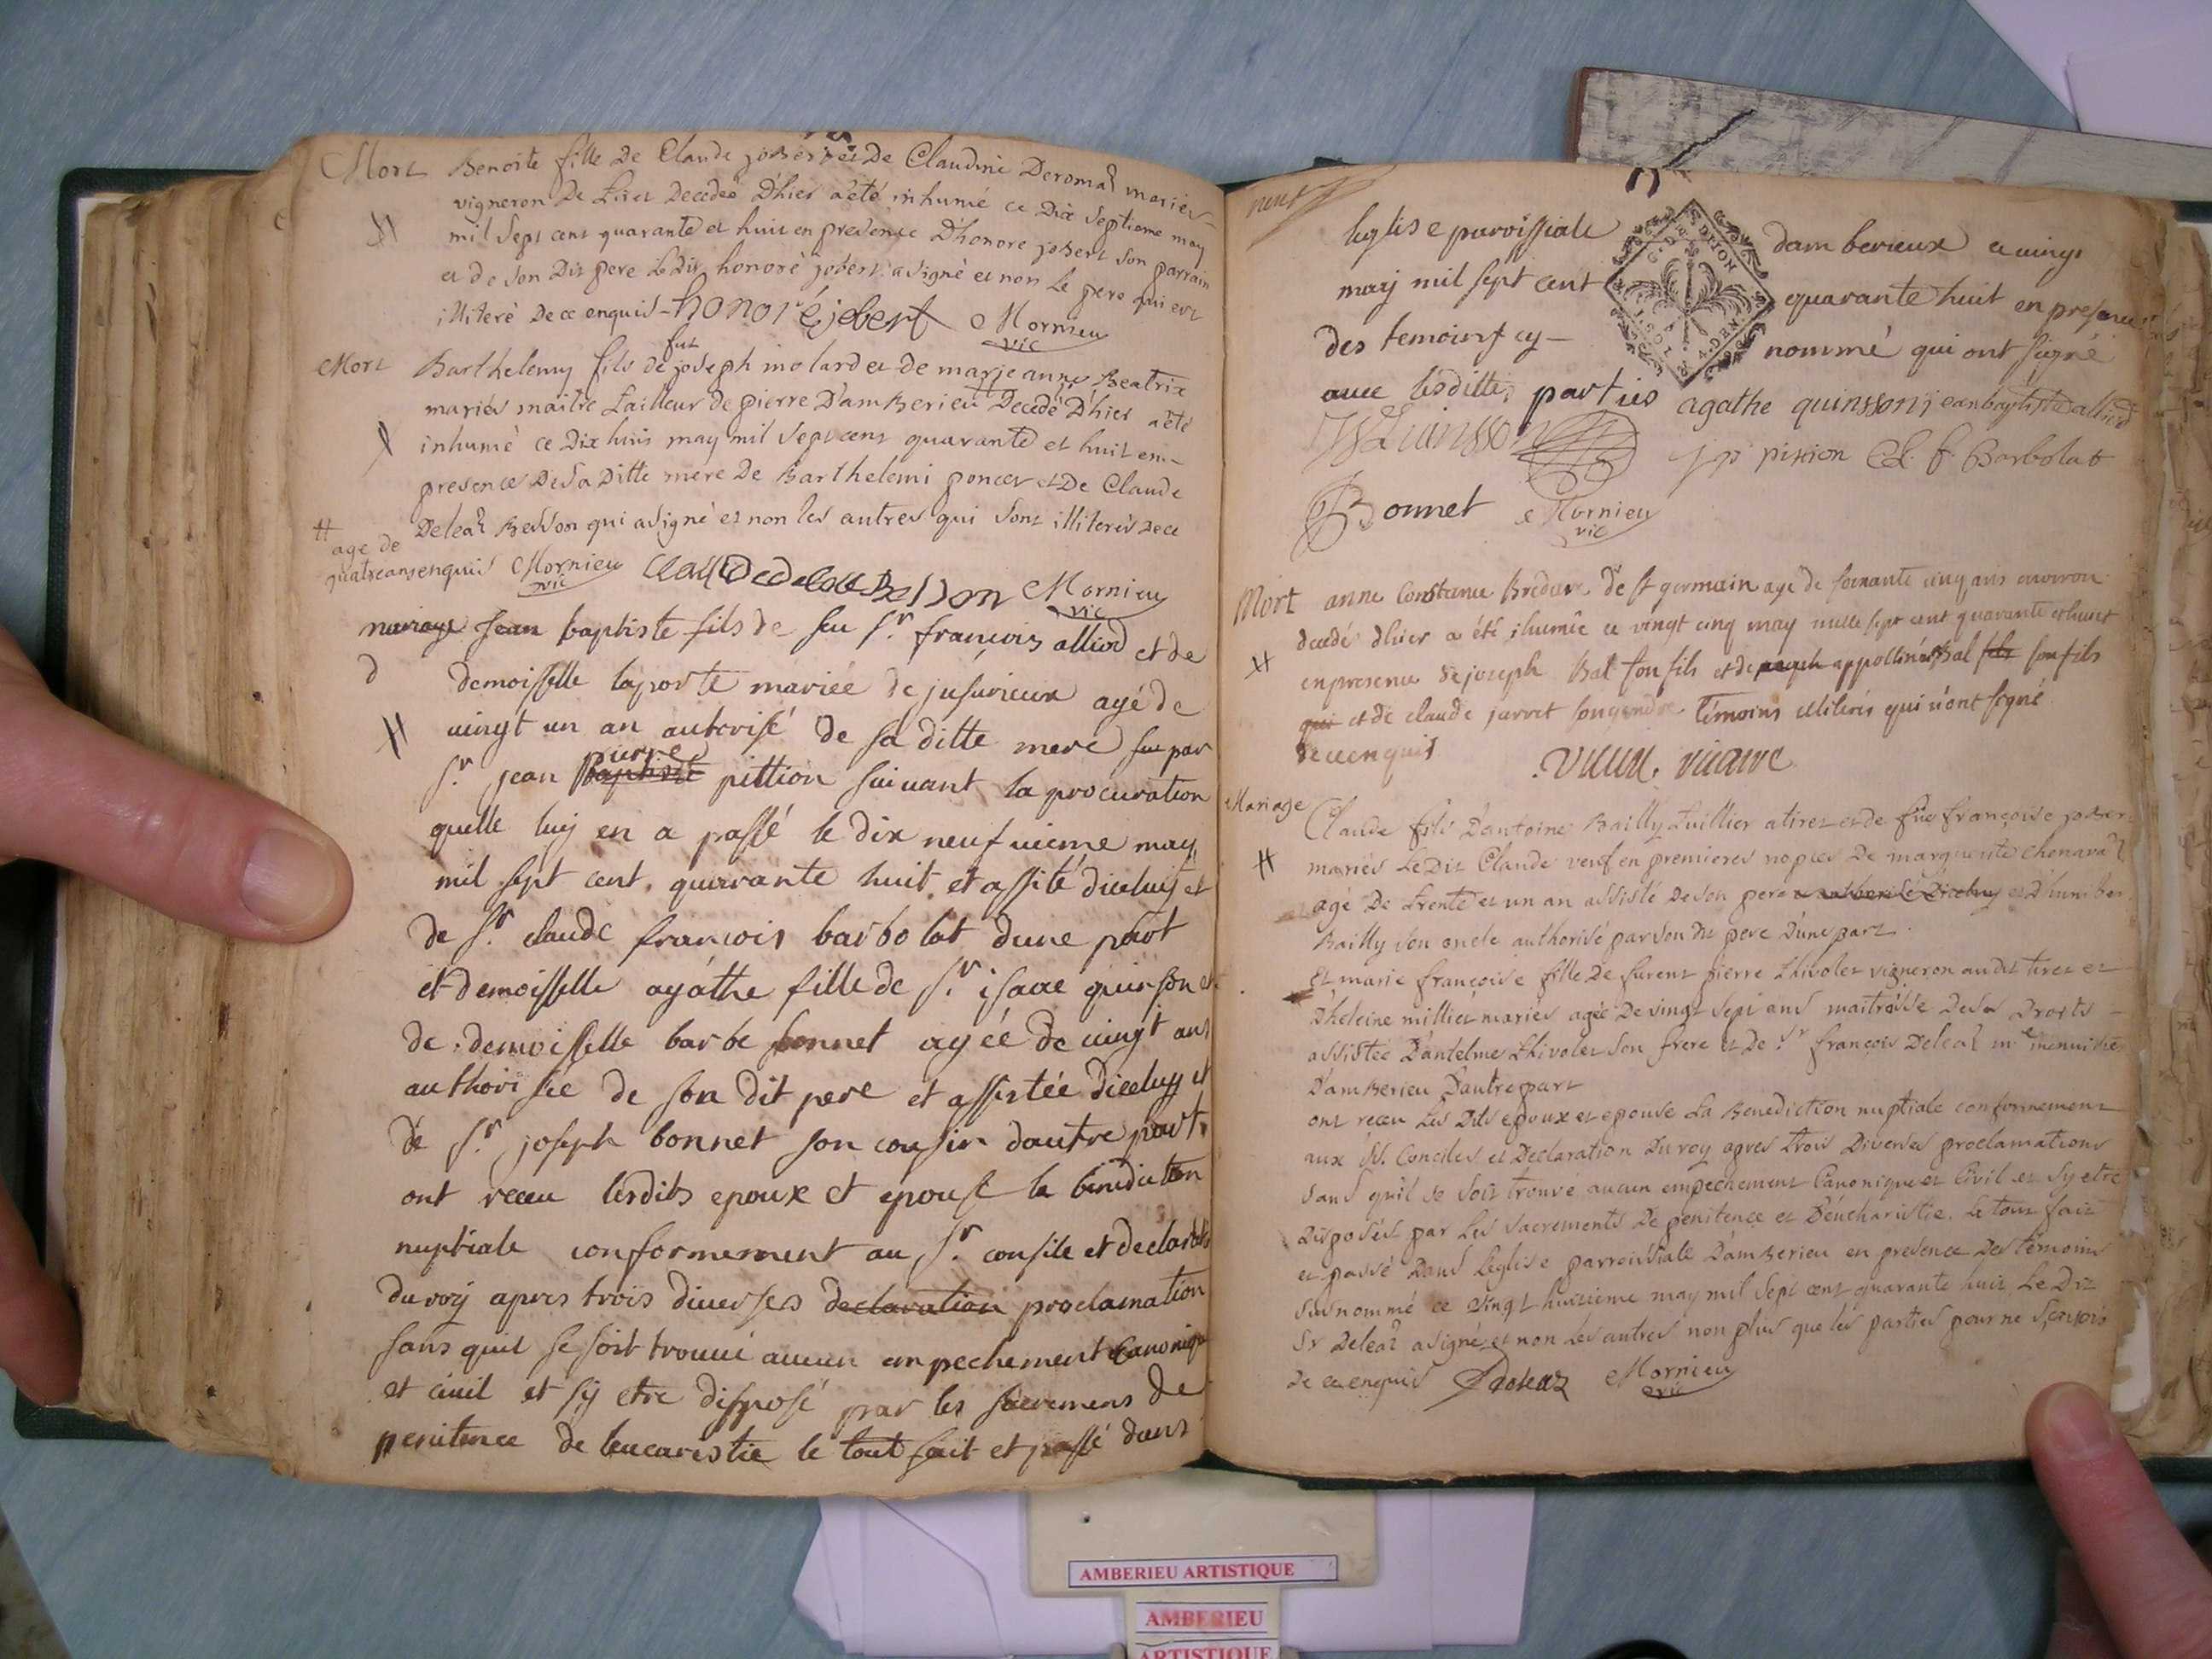 Mort Benoite fille De Claude joBert et De Claudine Deroma mariés
vigneron De Tiret Decedée D'hier a été inhumé ce Dix Septieme may
mil Sept cent quarante et huit en presence D'honoré joBert Son parrain
et de Son Dit pere LeDit honoré joBert a signé et non Le pere qui est
illiteré De ce enquis honoré jobert Mornieu
vic
Mort Barthelemy fils de fut joseph molard et de marieanne Beatrix
mariés maitre tailleur de pierre D'amBerieu Decedé D'hier a été
inhumé ce Dix huit may mil Sept cent quarante et huit en
presence De Sa Ditte mere De Barthelemi poncet et De Claude
Deleaz Besson qui a signé et non les autres qui Sont illiterés de ce
# agé de
quatre ans enquis Mornieu Claude deleas Besson Mornieu
vic vic
mariage jean baptiste fils de feu Sr. francois alliod et de
demoisselle laporte mariée de jusurieux agé de
vingt un an autorisé de sa ditte mere par
Sr. jean pierre baptiste pittion suivant la procuration
quelle luy en a passé le dix neufvieme may
mil sept cent quarante huit et assité diceluy et
de Sr. claude francois barbolat dune part
et demoisselle agathe fille de Sr. isaac quinson et
de demoisselle barbe bonnet agée de vingt ans
authorisée de son dit pere et assistée diceluy et
de Sr. joseph bonnet son cousin dautre part
ont receu lesdits epoux et epouse la benediction
nuptiale conformement au St. consile et declaration
du roy apres trois diverses declaration proclamation
sans quil se soit trouvé aucun empechement canonique
et civil et sy etre disposé par les sacremens de
penitence de leucaristie le tout fait et passé dans
leglise paroissiale damberieux ce vingt
may mil sept cent quarante huit en presence
des temoins cy nommé qui ont signé
avec lesdittes parties agathe quinsson jean baptiste alliod
Quinsson jp pittion Cl. f. Barbolat
Bonnet Mornieu
vic
Mort anne Constance Bredure de st germain agé de soixante cinq ans environ
decedé dhier a été ihumée ce vingt cinq may mille sept cent quarante et huit
en presence de joseph Bal son fils et de appollinére Bal fils son fils
qui et de claude jarret son gendre témoins illiterés qui n'ont signé
de ce enquis
vicaire
Mariage Claude fils D'antoine Bailly tuillier a tiret et de füe françoise joBert
mariés Le Dit Claude veuf en premieres nopces De marguerite chenavaz
agé De trente et un an assisté De Son pere et D'humbert
Bailly Son oncle authorisé par Son dit pere D'une part.
Et marie françoise fille De furent pierre Thivolet vigneron au dit tiret et
D'heleine milliet mariés agée De vingt Sept ans maitresse De Ses Droits
assistée D'antelme Thivolet Son frere et De Sr françois Deleaz me menuisier
D'amBerieu D'autre part
ont receu Les Dits epoux et epouse La Benediction nuptiale conformement
aux SS. Conciles et Declaration Du roy apres trois Diverses proclamations
Sans qu'il se Soit trouvé aucun empechement Canonique et Civil et Sy etre
Disposés par Les Sacrements De penitence et D'eucharistie. Le tout fait
et passé Dans L'eglise parroissiale D'amBerieu en presence Des témoins
Susnommé ce Vingt huitieme may mil Sept cent quarante huit Le Dit
Sr Deleaz a signé et non Les autres non plus que les parties pour ne Sçavoir
De ce enquis Deleaz Mornieu
vic
AMBERIEU ARTISTIQUE
AMBERIEU
ARTISTIQUE